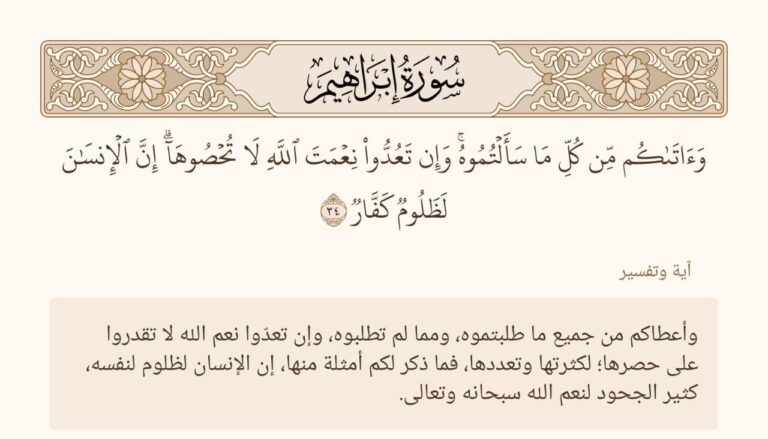 سُورَةُ إِبْرَاهِيمَ
وَءَاتَىٰكُم مِّن كُلِّ مَا سَأَلۡتُمُوهُۚ وَإِن تَعُدُّواْ نِعۡمَتَ ٱللَّهِ لَا تُحۡصُوهَآۗ إِنَّ ٱلۡإِنسَٰنَ
لَظَلُومٞ كَفَّارٞ ٣٤
آية وتفسير
وأعطاكم من جميع ما طلبتموه، ومما لم تطلبوه، وإن تعدّوا نعم الله لا تقدروا
على حصرها؛ لكثرتها وتعددها، فما ذكر لكم أمثلة منها، إن الإنسان لظلوم لنفسه،
كثير الجحود لنعم الله سبحانه وتعالى.